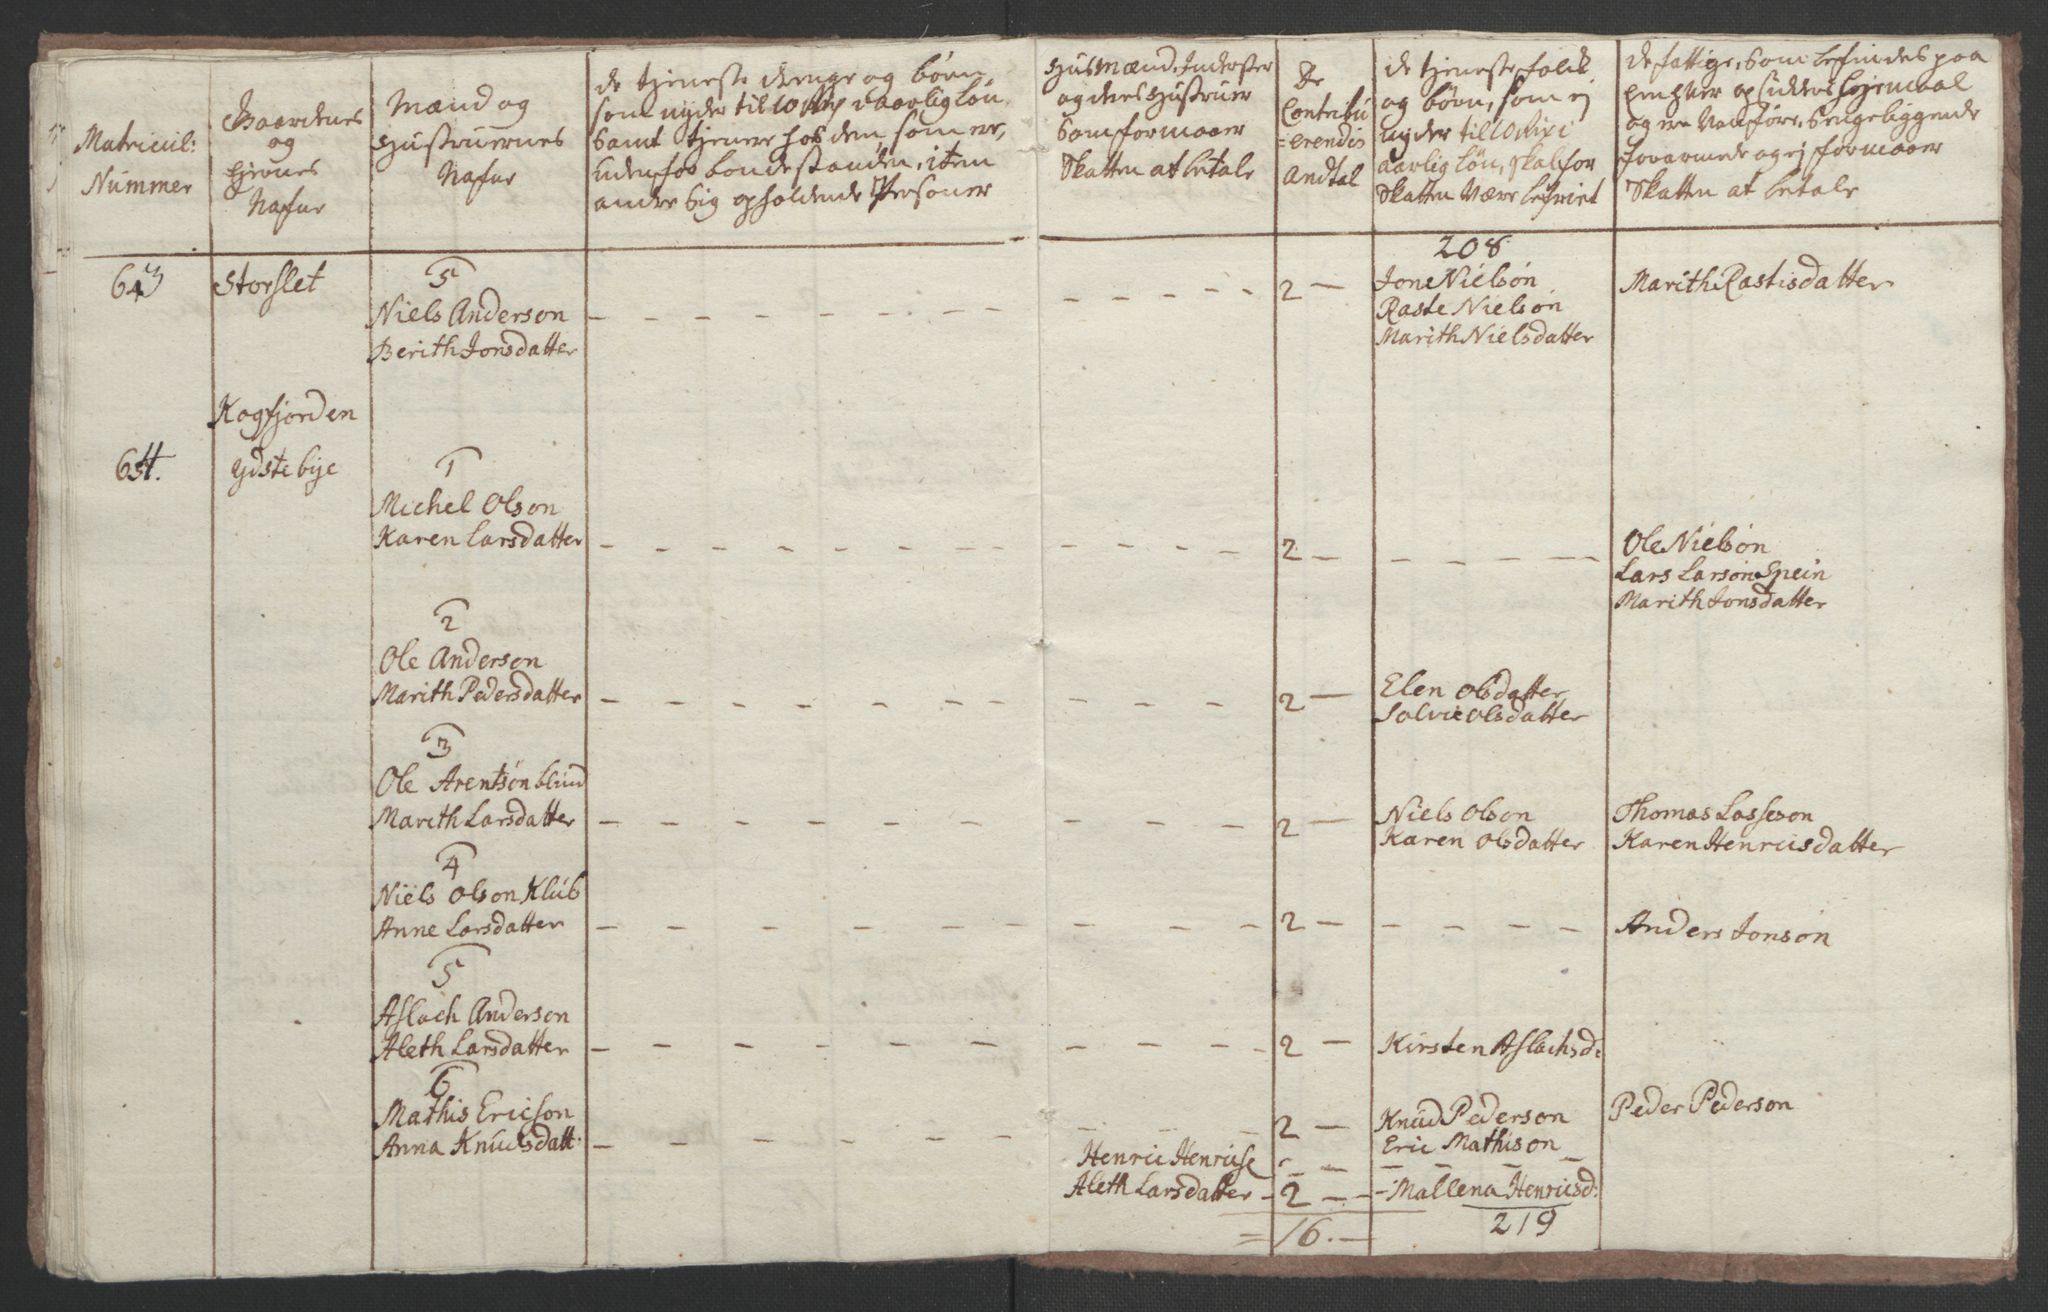 Matricul:
Nummer
Gaardenes
og
Eiernes
Nafne
Mænd og
Hustruernes
Nafne
de tjeneste drenge og børn,
som nyder til 10 aarlig Løn,
Samt tjenere hos dem, som er,
udenfor bondestanden, item
andre Sig opholdende Personer
Huusmænd, Inderster
og deres Hustruer
Som formaaer
Skatten at betale
De
Contribu
=erendis
Andtal
de tjeneste folk
og børn, som ej
nyder til 10
aarlig Løn, skal for
Skatten være befriet
de fattige, Som befindes paa
Enhver opsidders Hiemaal
og ere Vanføre, Sengeliggende
forarmede og ej formaaer
Skatten at betale
208
64
Storslet
5
Niels Anderson
Berith Jonsdatter
2
Jone Nielsøn
Raste Nielsøn
Marith Nielsdatter
Marith Rastisdatter
Kogfjorden
65
ydste bye
1
Michel Olson
Karen Larsdatter
2
Ole Nielsøn
Lars Larson Spein
Marith Jonsdatter
2
Ole Anderson
Marith Pedersdatter
2
Elen Olsdatter
Solvie Olsdatter
3
Ole Arentsøn blind
Marith Larsdatter
2
Niels Olson
Karen Olsdatter
Thomas Lasseson
Karen Henricsdatter
4
Niels Olson Klub
Anne Larsdatter
2
Anders Jonsøn
5
Aslach Anderson
Aleth Larsdatter
2
Kirsten Aslachsd:
6
Mathis Ericson
Anna Knudsdatt:
2
Knud Pederson
Eric Mathison
Peder Pederson
Henric Henricse
Aleth Larsdatter
2
Mallena Henricsd:
= 16.
219